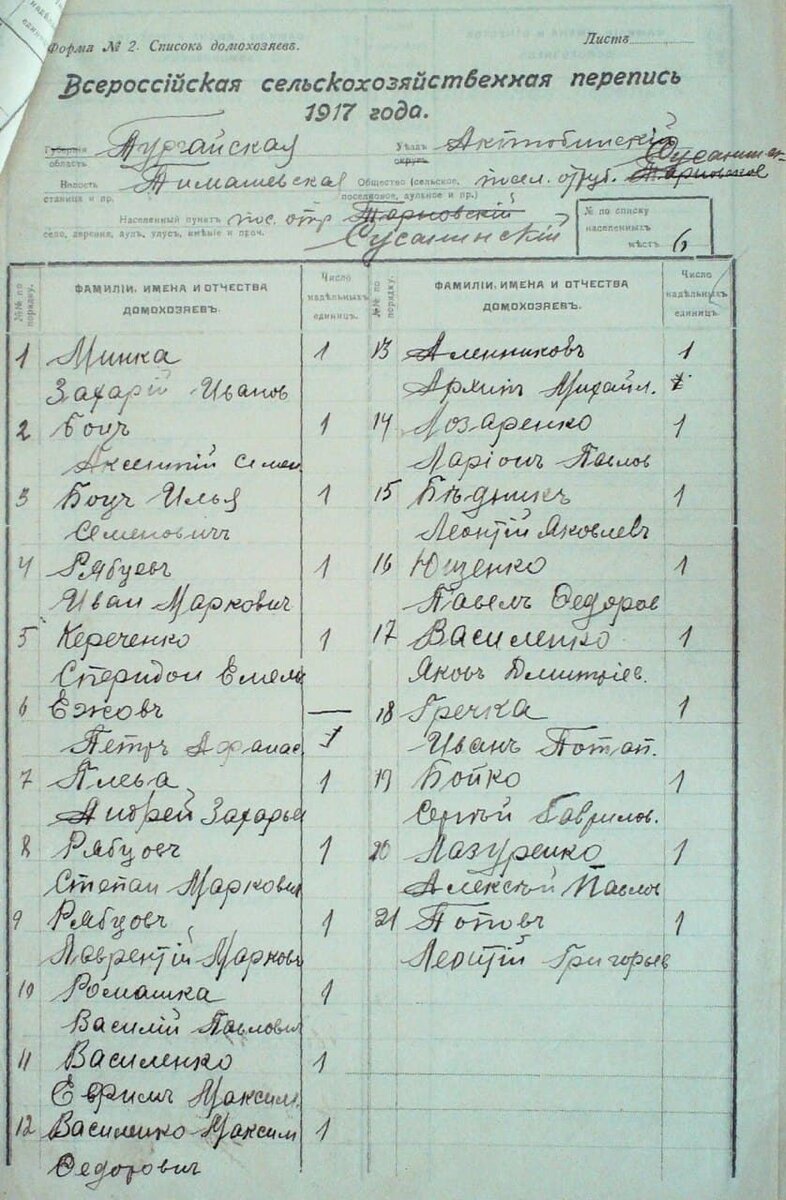 Форма № 2. Списокъ домохозяевъ.
Листъ
Всероссійская сельскохозяйственная перепись
1917 года.
Губернія
область
Тургайская
Уѣздъ
округъ
Актюбинскій
Волость
станица и пр.
Тимашевская
Общество (сельское,
поселковое, аульное и пр.)
посел. отруб. Тарновское
Населенный пункт
село, деревня, аулъ, улусъ, имѣніе и проч.
пос. отр. Тарновскій
Сусанинскій
№ по списку
населенныхъ
мѣстъ
6
№№ по порядку.
ФАМИЛІИ, ИМЕНА И ОТЧЕСТВА
ДОМОХОЗЯЕВЪ.
Число
надѣльныхъ
единицъ.
1 Минка 1
Захарій Иванов
2 Боцъ 1
Аксентій Семен.
3 Боцъ Илья 1
Семеновичъ
4 Рябцевъ 1
Иван Маркович
5 Кереченко 1
Спиридон Емель
6 Ежовъ —
Петръ Афанас. 1
7 Плева 1
Андрей Захарьев
8 Рябцовъ 1
Степан Маркович
9 Рябцовъ 1
Лаврентій Марковъ
10 Ромашка 1
Василій Павлович
11 Василенко 1
Ефримъ Максим.
12 Василенко Максим 1
Федорович
№№ по порядку.
ФАМИЛІИ, ИМЕНА И ОТЧЕСТВА
ДОМОХОЗЯЕВЪ.
Число
надѣльныхъ
единицъ.
13 Аленниковъ 1
Архипъ Михайл.
14 Лозаренко 1
Ларіонъ Павлов
15 Бѣдникъ 1
Леонтій Яковлевъ
16 Ющенко 1
Павелъ Федоров
17 Василенко 1
Яковъ Дмитріев.
18 Гречка 1
Иванъ Потап.
19 Бойко 1
Сергѣй Гаврилов.
20 Лазуренко 1
Алексѣй Павлов
21 Поповъ 1
Леонтій Григорьев